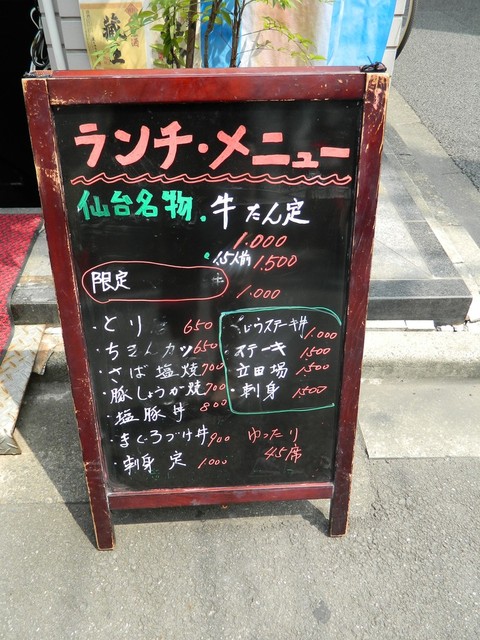 蔵王
ランチ・メニュー
仙台名物・牛たん定
1.000
・1.5人前 1.500
限定
1.000
・とり 650
・ちきんカツ 650
・さば塩焼 700
・豚しょうが焼 700
・塩豚丼 800
・まぐろづけ丼 900
・刺身 定 1.000
ステーキ丼 1.000
・ステーキ 1500
・立田場 1.500
・刺身 1500
ゆったり
45席